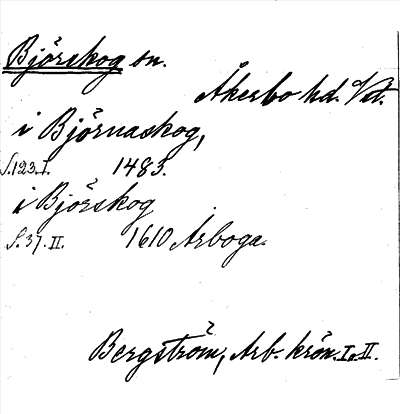 Björskog sn.
Åkerbo hd. Vstl.
i Björnaskog,
S. 123. I. 1483.
i Björskog
S. 37. II. 1610 Arboga.
Bergström, Arb. krön. I. II.